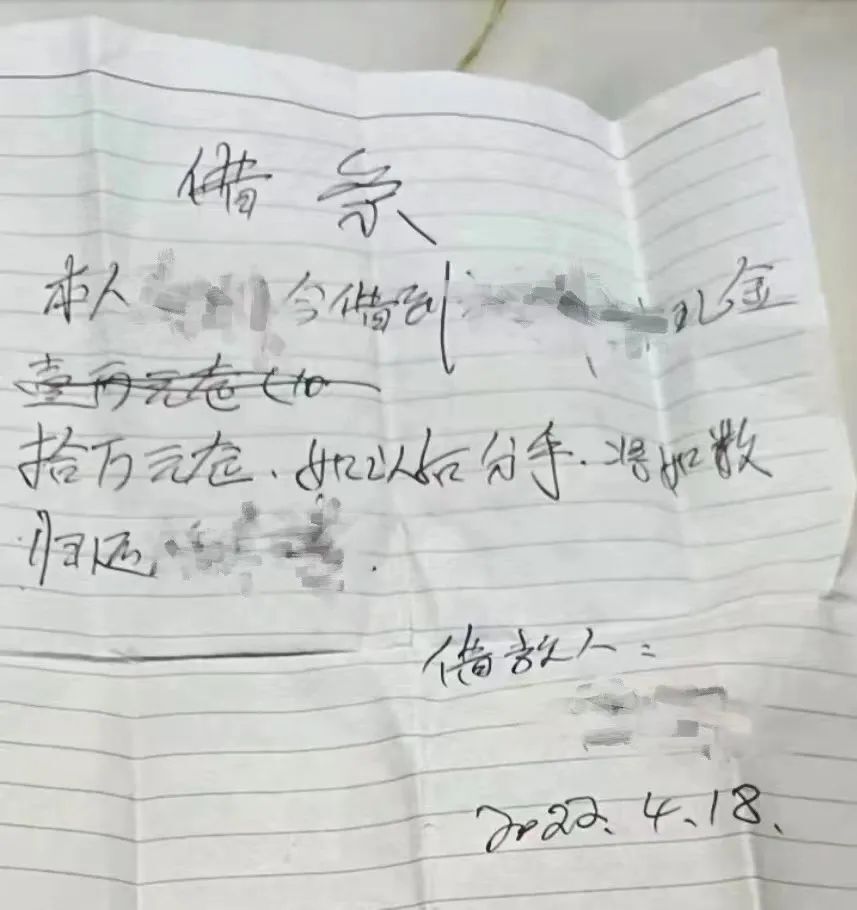 借条
本人 今借到 礼金
壹万元整(10
拾万元整、如以后分手、将如数
归还 .
借款人:
2022.4.18、